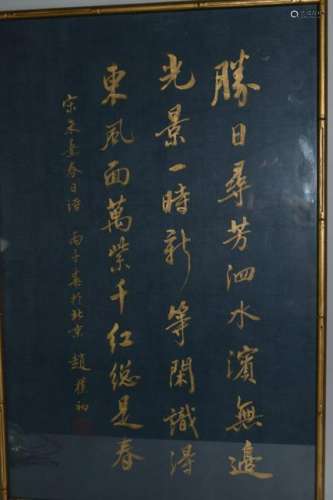 勝日尋芳泗水濱無邊
光景一時新等閑識得
東風面萬紫千紅總是春
宋朱熹春日詩 丙子春於北京 趙樸初